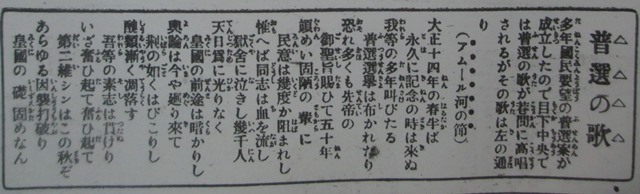 △△普選の歌△△
多年國民要望の普選案が
成立したので目下中央で
は普選の歌が巷間に高唱
されるがその歌は左の通
り
(アムール河の節)
大正十四年の春半ば
永久に記念の時は來ぬ
我等の多年叫びたる
普選選擧は布かれたり
恐れ多くも先帝の
御聖旨賜ひて五十年
頑めい固陋の輩に
民意は幾度か阻まれし
惟へば同志は血を流し
獄舍に泣きし幾千人
天日爲に光りなく
皇國の前途は暗かりし
輿論は今や廻り來て
荊の如くはびこりし
醜類漸く凋落す
吾等の素志は貫けり
いざ奮ひ起て奮ひ起て
第二維シンはこの秋ぞ
あらゆる因襲打破り
皇國の礎固めなん